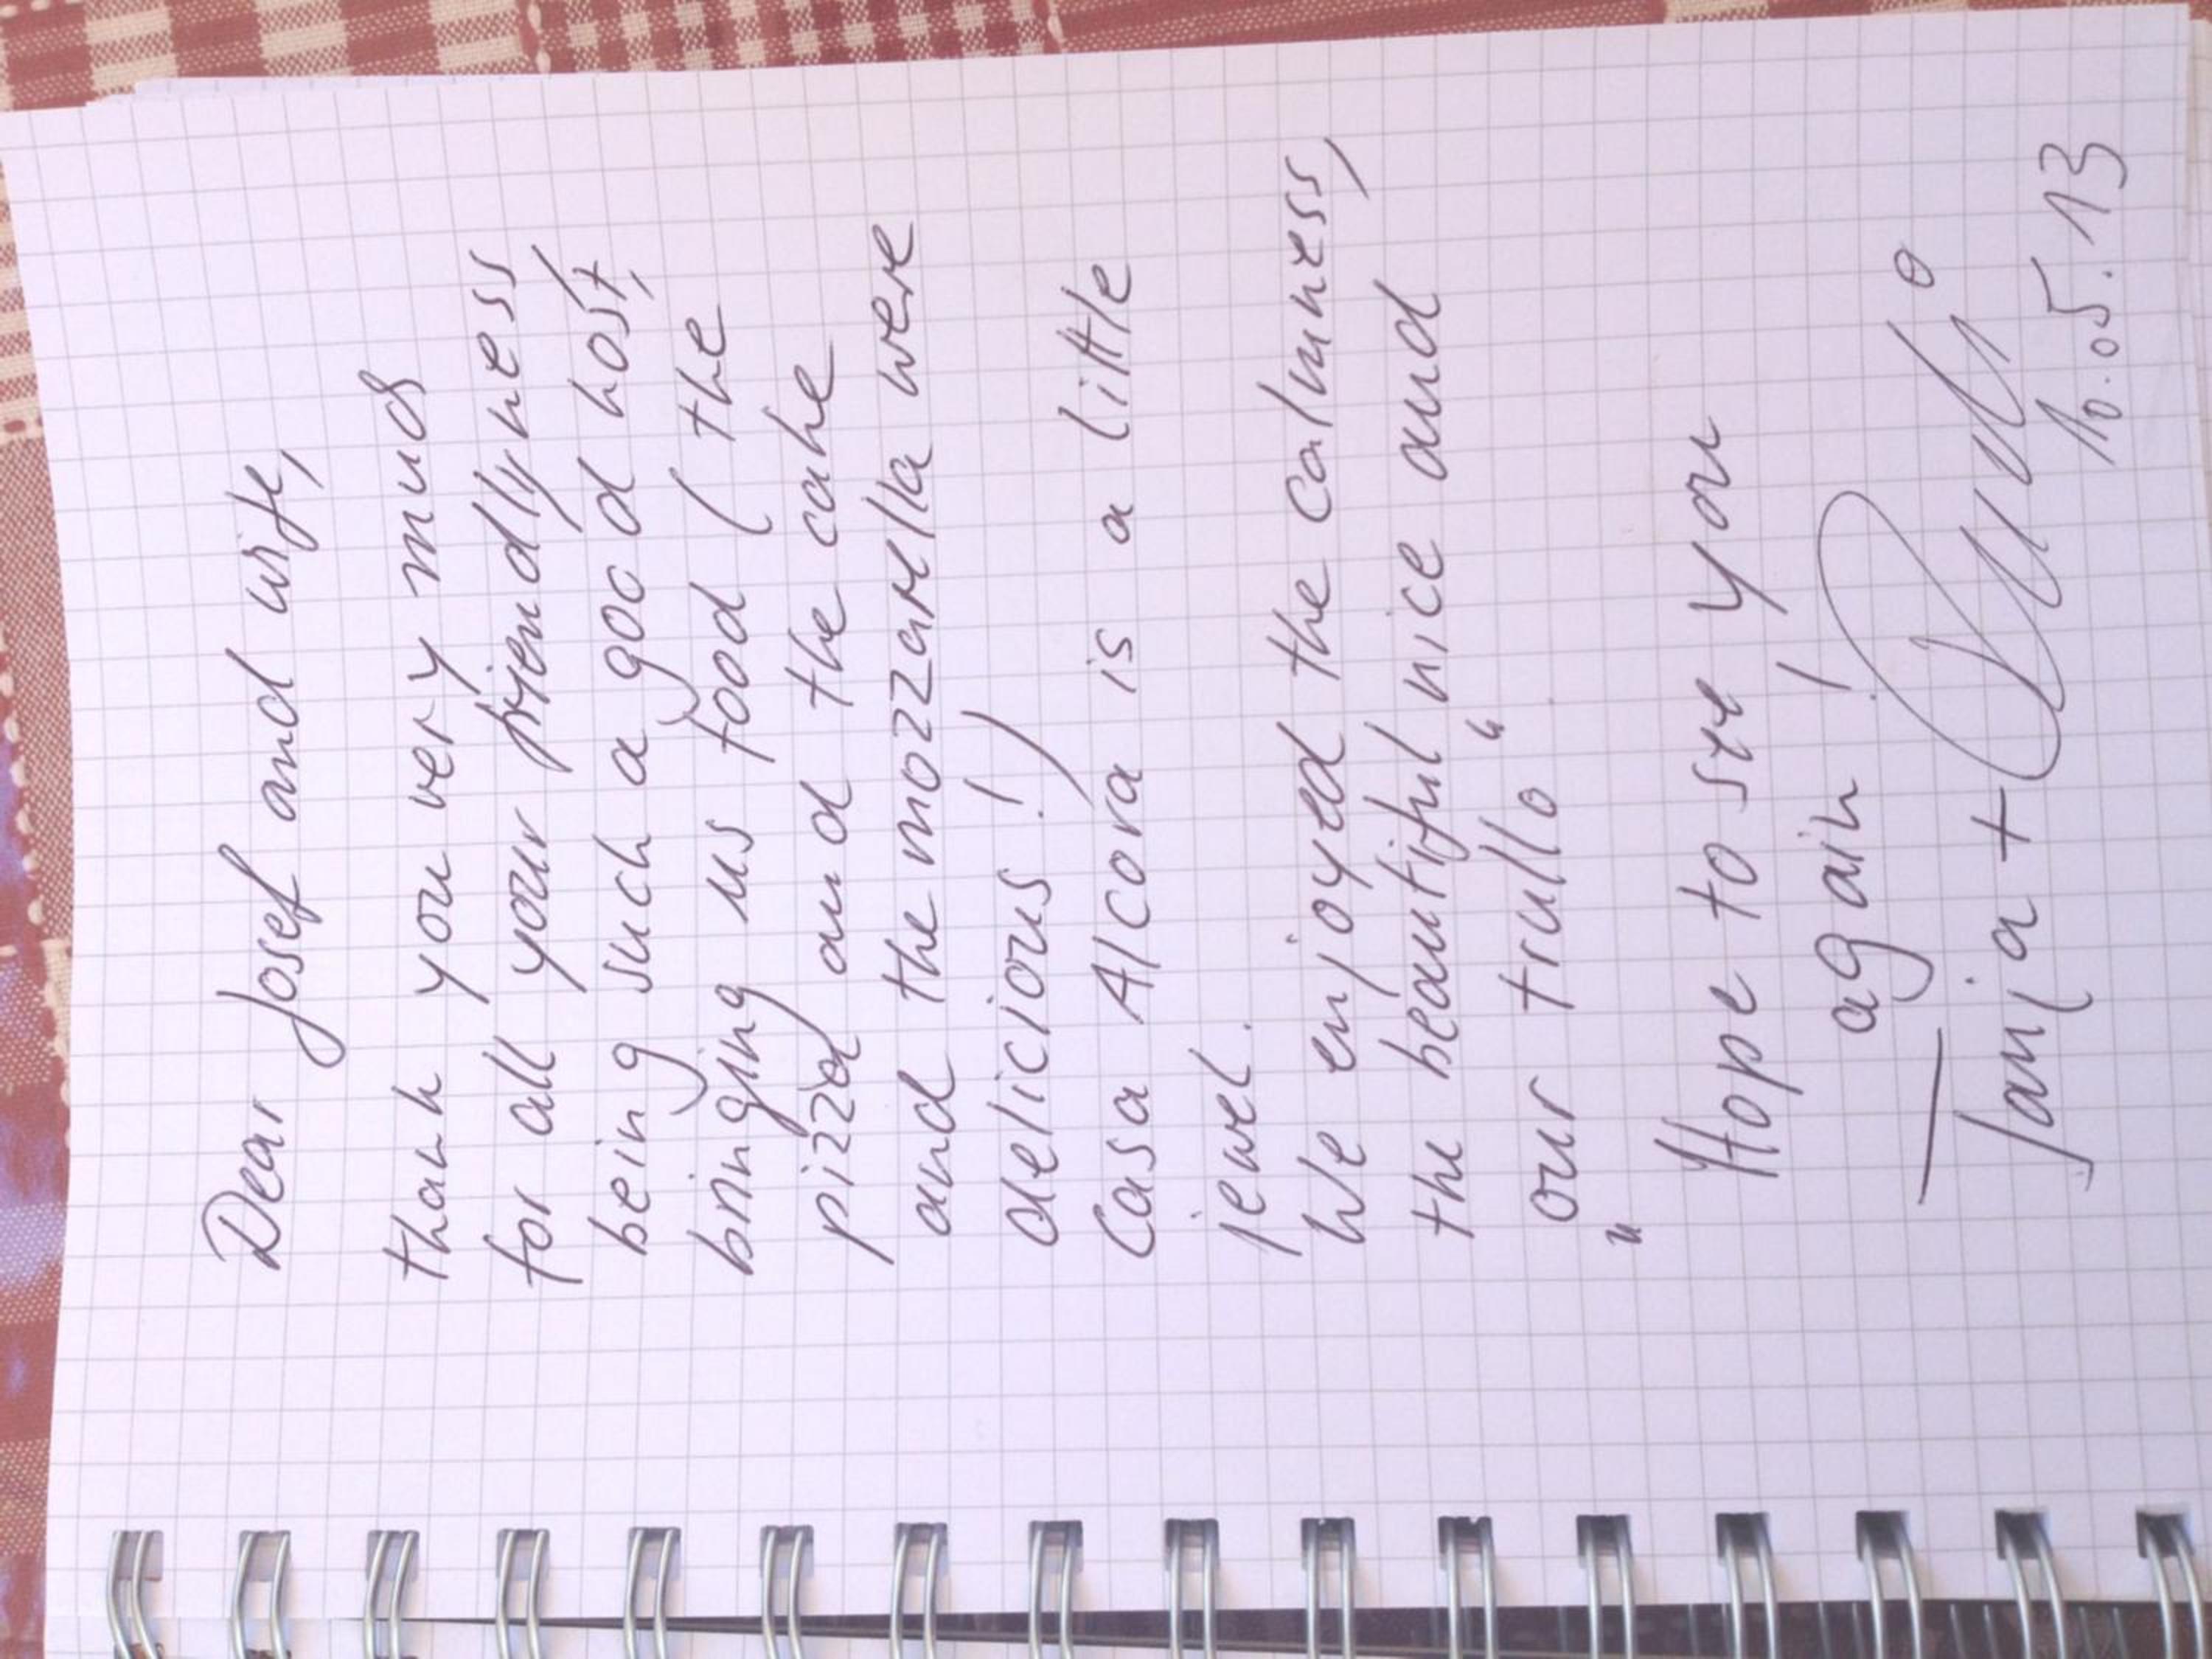 Dear Josef and wife,
thank you very much
for all your friendlyness,
being such a good host,
bringing us food (the
pizza and the cake
and the mozzarella were
delicious!)
Casa Alcova is a little
jewel.
We enjoyed the calmness,
the beautiful nice and
our „trullo“.
Hope to see you
again!
10.05.13